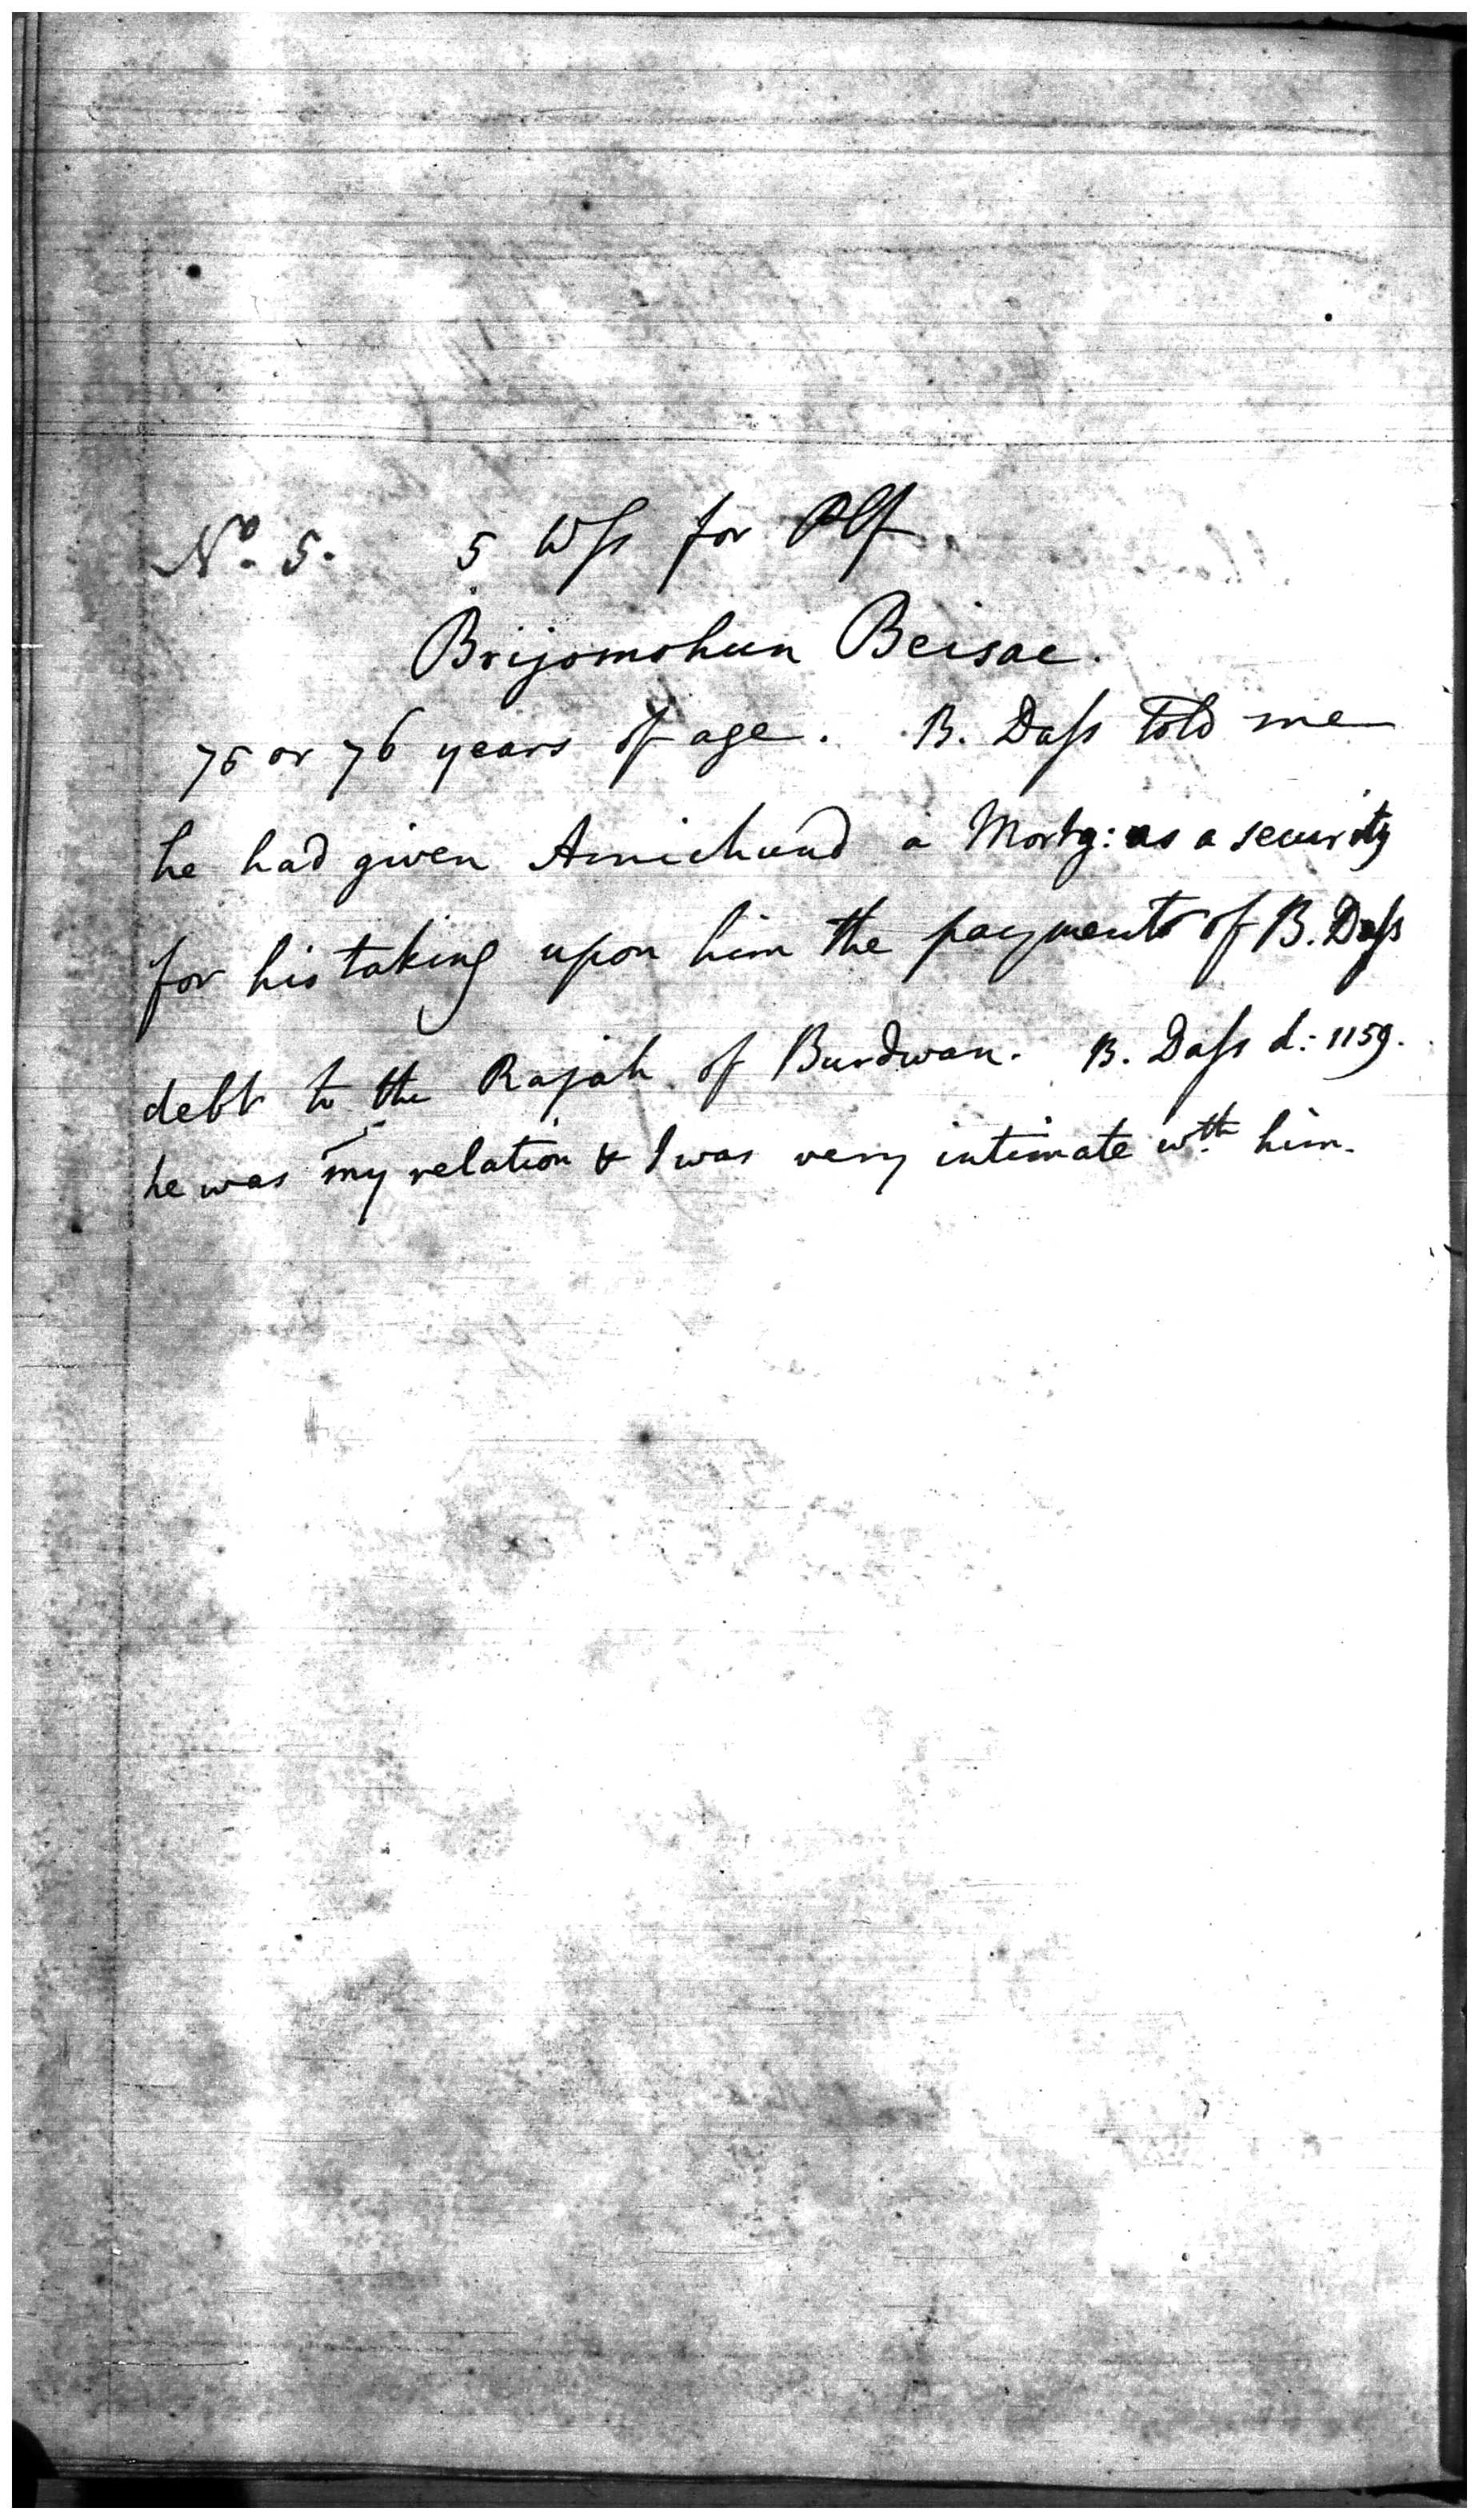 No. 5. 5 Wss for Plf
Brijomohun Beisac.
75 or 76 years of age. B. Dass told me
he had given Amichund a Mortg: as a security
for his taking upon him the payment of B. Dass
debt to the Rajah of Burdwan. B. Dass d: 1159.
he was my relation & I was very intimate wth him.